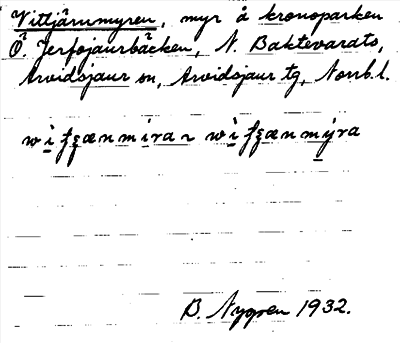 Vittjärnmyren, myr å kronoparken
Ö. Jerfojaurbäcken, N. Baktevarats,
Arvidsjaur sn, Arvidsjaur tg, Norrb.l.
B. Nygren 1932.